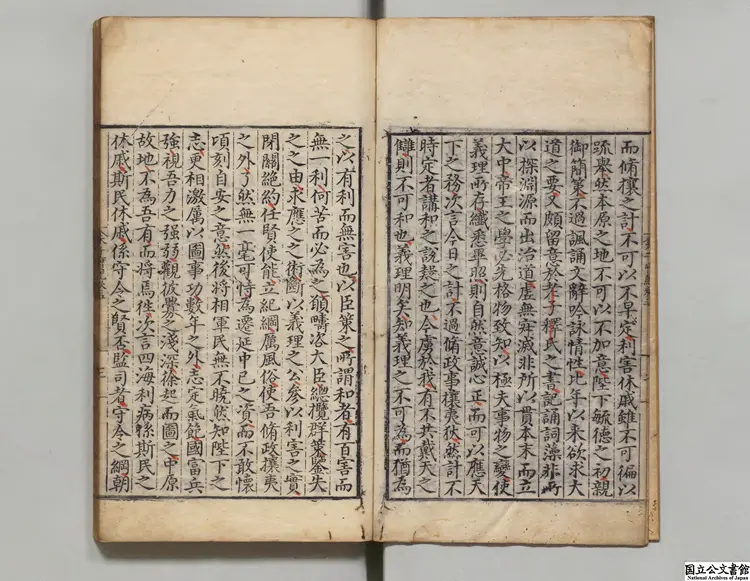 而脩攘之計不可以不早定利害休戚雖不可徧以
䟽舉然本原之地不可以不加意陛下毓德之初親
御簡策不過諷誦文辭吟詠情性比年以來欲求大
道之要又頗留意於老子釋氏之書記誦詞藻非所
以探淵源而出治道虛無寂滅非所以貫本末而立
大中帝王之學必先格物致知以極夫事物之變使
義理所存纖悉畢照則自然意誠心正而可以應天
下之務次言今日之計不過脩政事攘夷狄然計不
時定者講和之說誤之也今虜於我有不共戴天之
讎則不可和也義理明矣知義理之不可為而猶為
之以有利而無害也以臣策之所謂和者有百害而
無一利何苦而必為之願疇咨大臣總攬群策鑒失
之之由求應之之術斷以義理之公參以利害之實
閉關絕約任賢使能立紀綱厲風俗使吾脩政攘夷
之外了然無一毫可恃為遷延中已之資而不敢懷
頃刻自安之意然後將相軍民無不曉然知陛下之
志更相激厲以圖事功數年之外志定氣飽國富兵
強視吾力之強弱觀彼釁之淺深徐起而圖之中原
故地不為吾有而將焉往次言四海利病係斯民之
休戚斯民休戚係守令之賢否監司者守令之綱朝
国立公文書館
National Archives of Japan